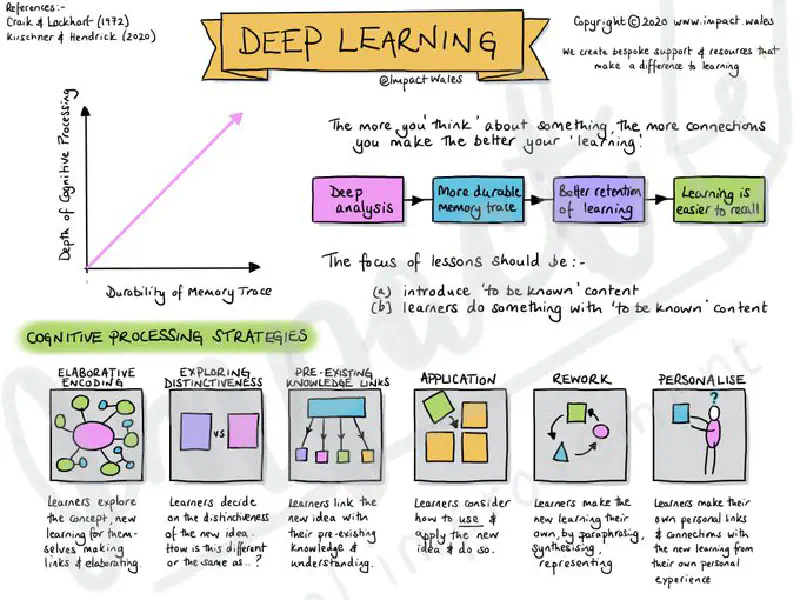 References:-
Craik & Lockhart (1972)
Kirschner & Hendrick (2020)
DEEP LEARNING
@Impact Wales
Copyright © 2020 www.impact.wales
We create bespoke support & resources that
make a difference to learning
Depth of Cognitive Processing
Durability of Memory Trace
The more you 'think' about something, the more connections
you make the better your 'learning'.
Deep
analysis
More durable
memory trace
Better retention
of learning
Learning is
easier to recall
The focus of lessons should be:-
(a) introduce 'to be known' content
(b) learners do something with 'to be known' content
COGNITIVE PROCESSING STRATEGIES
ELABORATIVE
ENCODING
Learners explore
the concept, new
learning for them-
selves making
links & elaborating.
EXPLORING
DISTINCTIVENESS
VS
Learners decide
on the distinctiveness
of the new idea.
How is this different
or the same as..?
PRE-EXISTING
KNOWLEDGE LINKS
Learners link the
new idea with
their pre-existing
knowledge &
understanding.
APPLICATION
Learners consider
how to use &
apply the new
idea & do so.
REWORK
Learners make the
new learning their
own, by paraphrasing,
synthesising,
representing
PERSONALISE
?
Learners make their
own personal links
& connections with
the new learning from
their own personal
experience